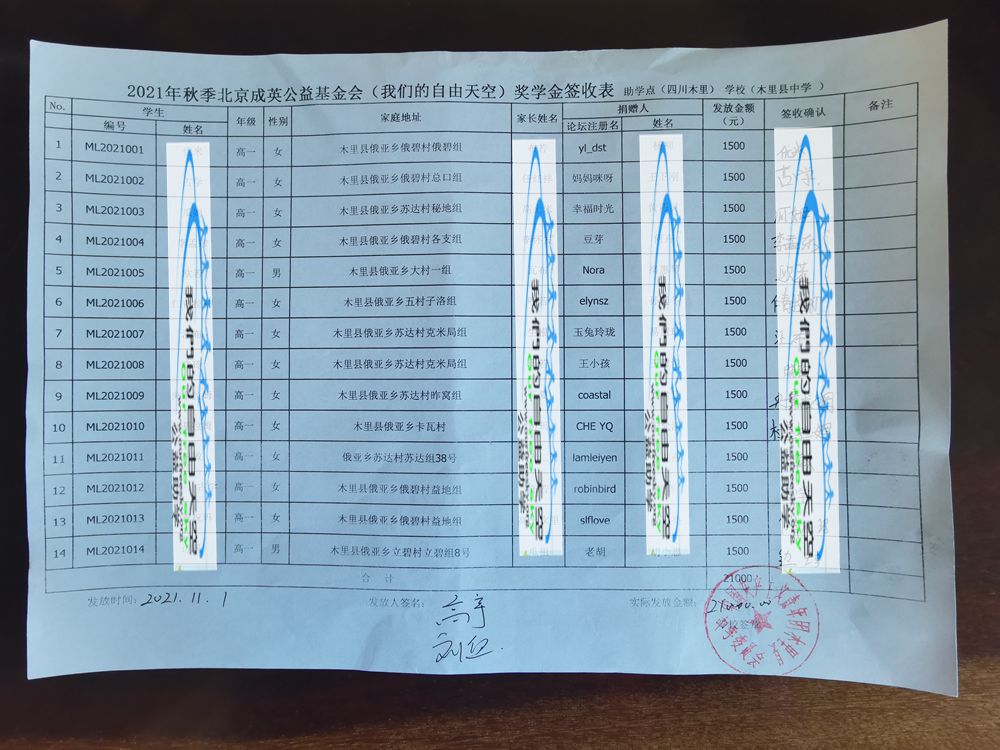 2021年秋季北京成英公益基金会（我们的自由天空）奖学金签收表 助学点（四川木里） 学校（木里县中学 ）
No. 学生 年级 性别 家庭地址 家长姓名 捐赠人 发放金额（元） 签收确认 备注
编号 姓名 论坛注册名 姓名
1 ML2021001 高一 女 木里县俄亚乡俄碧村俄碧组 yl_dst 1500
2 ML2021002 高一 女 木里县俄亚乡俄碧村总口组 妈妈咪呀 1500
3 ML2021003 高一 女 木里县俄亚乡苏达村秘地组 幸福时光 1500
4 ML2021004 高一 女 木里县俄亚乡俄碧村各支组 豆芽 1500
5 ML2021005 高一 男 木里县俄亚乡大村一组 Nora 1500
6 ML2021006 高一 女 木里县俄亚乡五村子洛组 elynsz 1500
7 ML2021007 高一 女 木里县俄亚乡苏达村克米局组 玉兔玲珑 1500
8 ML2021008 高一 女 木里县俄亚乡苏达村克米局组 王小孩 1500
9 ML2021009 高一 女 木里县俄亚乡苏达村昨窝组 coastal 1500
10 ML2021010 高一 女 木里县俄亚乡卡瓦村 CHE YQ 1500
11 ML2021011 高一 女 俄亚乡苏达村苏达组38号 lamleiyen 1500
12 ML2021012 高一 女 木里县俄亚乡俄碧村益地组 robinbird 1500
13 ML2021013 高一 女 木里县俄亚乡俄碧村益地组 slflove 1500
14 ML2021014 高一 男 木里县俄亚乡立碧村立碧组8号 老胡 1500
合 计 21000
发放时间：2021.11.1 发放人签名： 实际发放金额：21000.00
我们的自由天空
我们的自由天空
我们的自由天空
我们的自由天空